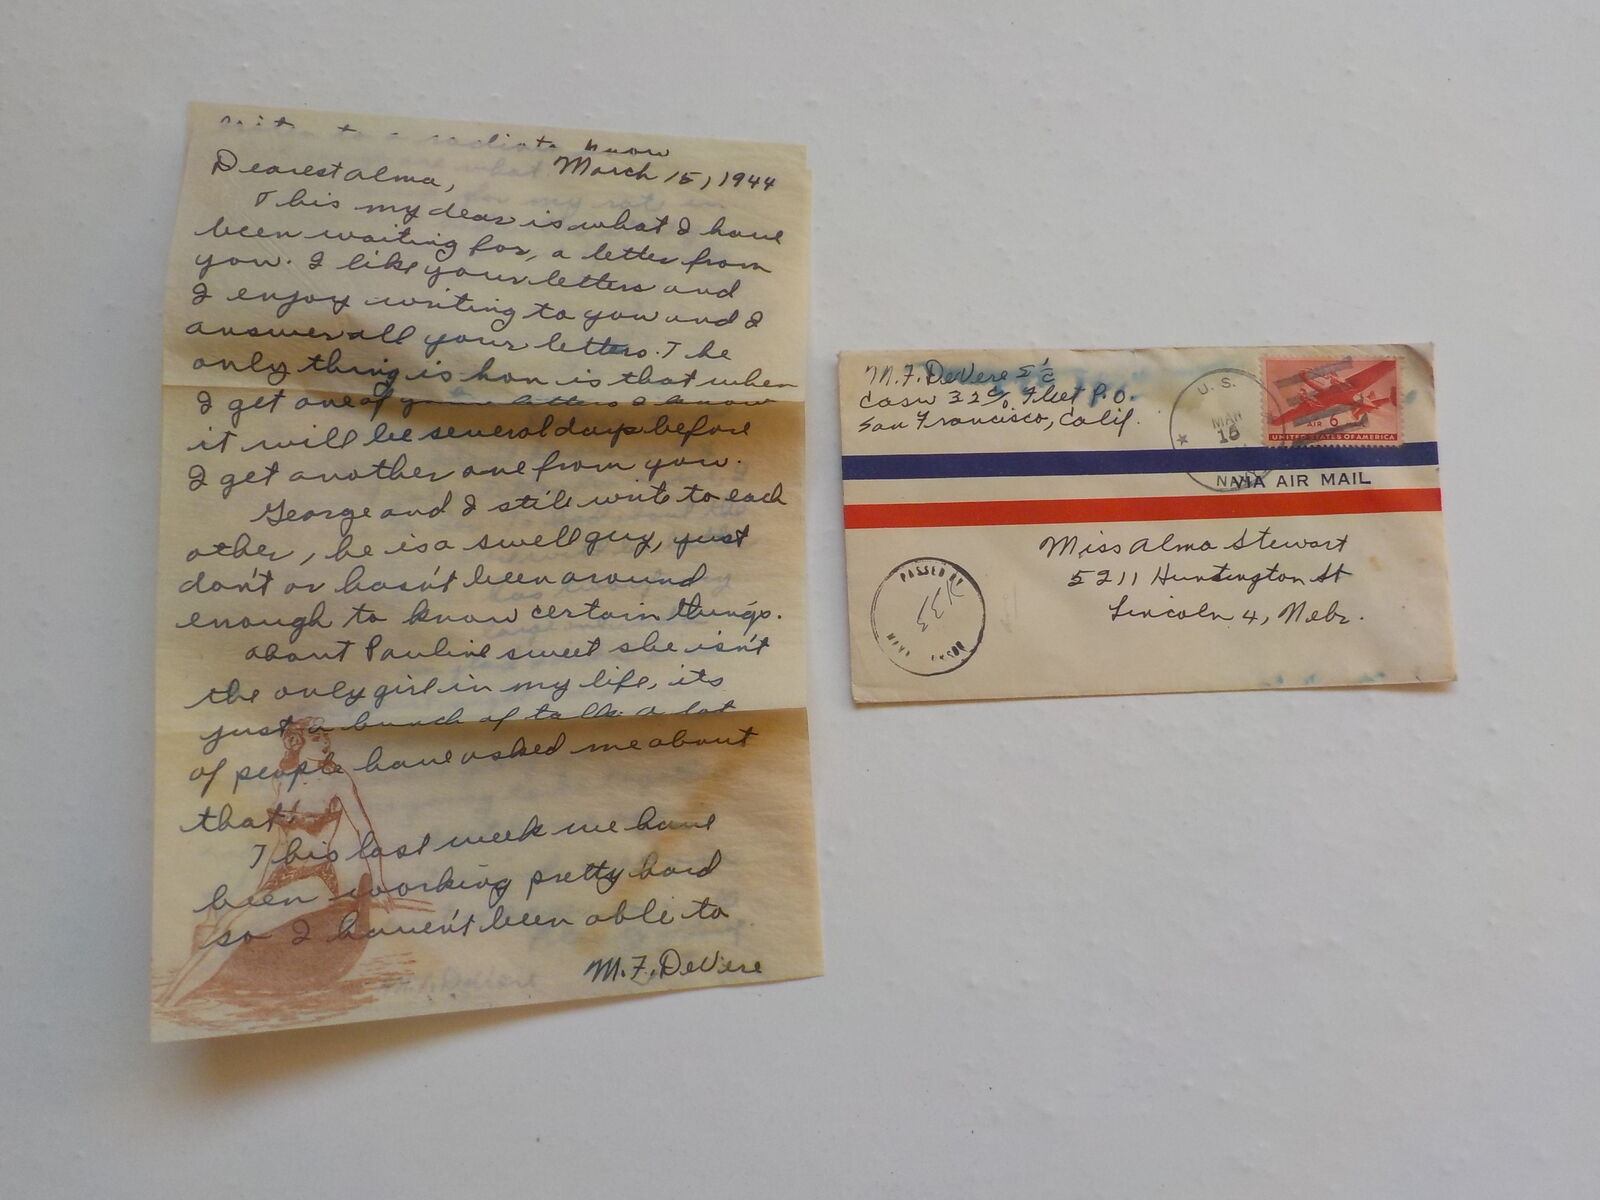 know
Dearest Alma,
March 15, 1944
This my dear is what I have
been waiting for, a letter from
you. I like your letters and
I enjoy writing to you and I
answer all your letters. The
only thing is hon is that when
I get one of your letters I know
it will be several days before
I get another one from you.
George and I still write to each
other, he is a swell guy, just
don't or hasn't been around
enough to know certain things.
About Pauline sweet she isn't
the only girl in my life, its
just a bunch of talk a lot
of people have asked me about
that.
This last week we have
been working pretty hard
so I haven't been able to
M.F. DeVere
M.F. DeVere S 1/c
Casu 32 c/o Fleet P.O.
San Francisco, Calif.
U.S.
MAR
15
NAVY
AIR 6¢
UNITED STATES OF AMERICA
VIA AIR MAIL
Miss Alma Stewart
5211 Huntington St
Lincoln 4, Nebr.
PASSED BY
NAVAL CENSOR